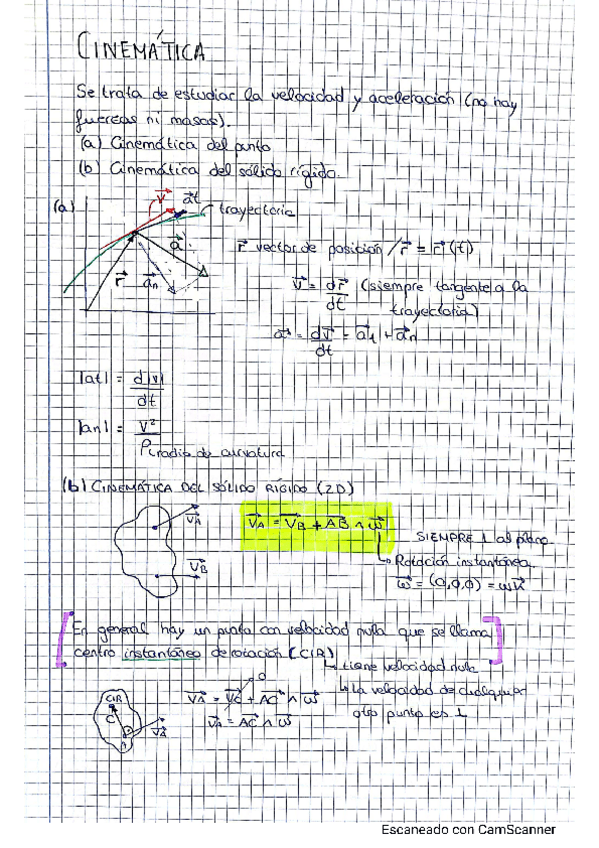 CINEMÁTICA
Se trata de estudiar la velocidad y aceleración (no hay
fuerzas ni masas).
(a) Cinemática del punto
(b) Cinemática del sólido rígido.
(a)
v⃗
a⃗t
trayectoria
a⃗
r⃗
a⃗n
r⃗ vector de posición / r⃗ = r⃗(t)
v⃗ = dr⃗/dt (siempre tangente a la
trayectoria)
a⃗ = dv⃗/dt = a⃗t + a⃗n
|at| = d|v|/dt
|an| = v²/ρ
radio de curvatura
(b) CINEMÁTICA DEL SÓLIDO RÍGIDO (2D)
v⃗A
v⃗B
v⃗A = v⃗B + AB ∧ ω⃗
SIEMPRE ⊥ al plano
Rotación instantánea
ω⃗ = (0,0,ω) = ωk⃗
En general hay un punto con velocidad nula que se llama
centro instantáneo de rotación (CIR)
tiene velocidad nula
la velocidad de cualquier
otro punto es ⊥
CIR
C
v⃗A
v⃗A = v⃗C + AC ∧ ω⃗
0
v⃗A = AC ∧ ω⃗
Escaneado con CamScanner